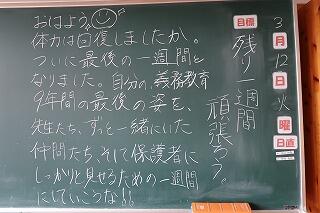 おはよう
体力は回復しましたか。
ついに最後の一週間と
なりました。自分の、義務教育
9年間の最後の姿を、
先生たち、ずっと一緒にいた
仲間たち、そして保護者に
しっかりと見せるための一週間
にしていこうな!!
目標
残り一週間
頑張ろう。
3
月
12
日
火
曜
日直